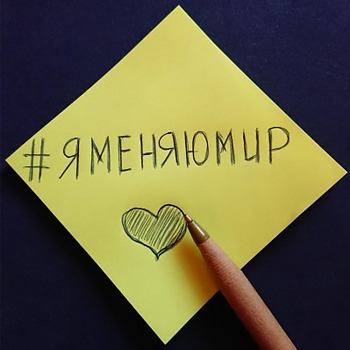 #ЯМЕНЯЮМИР